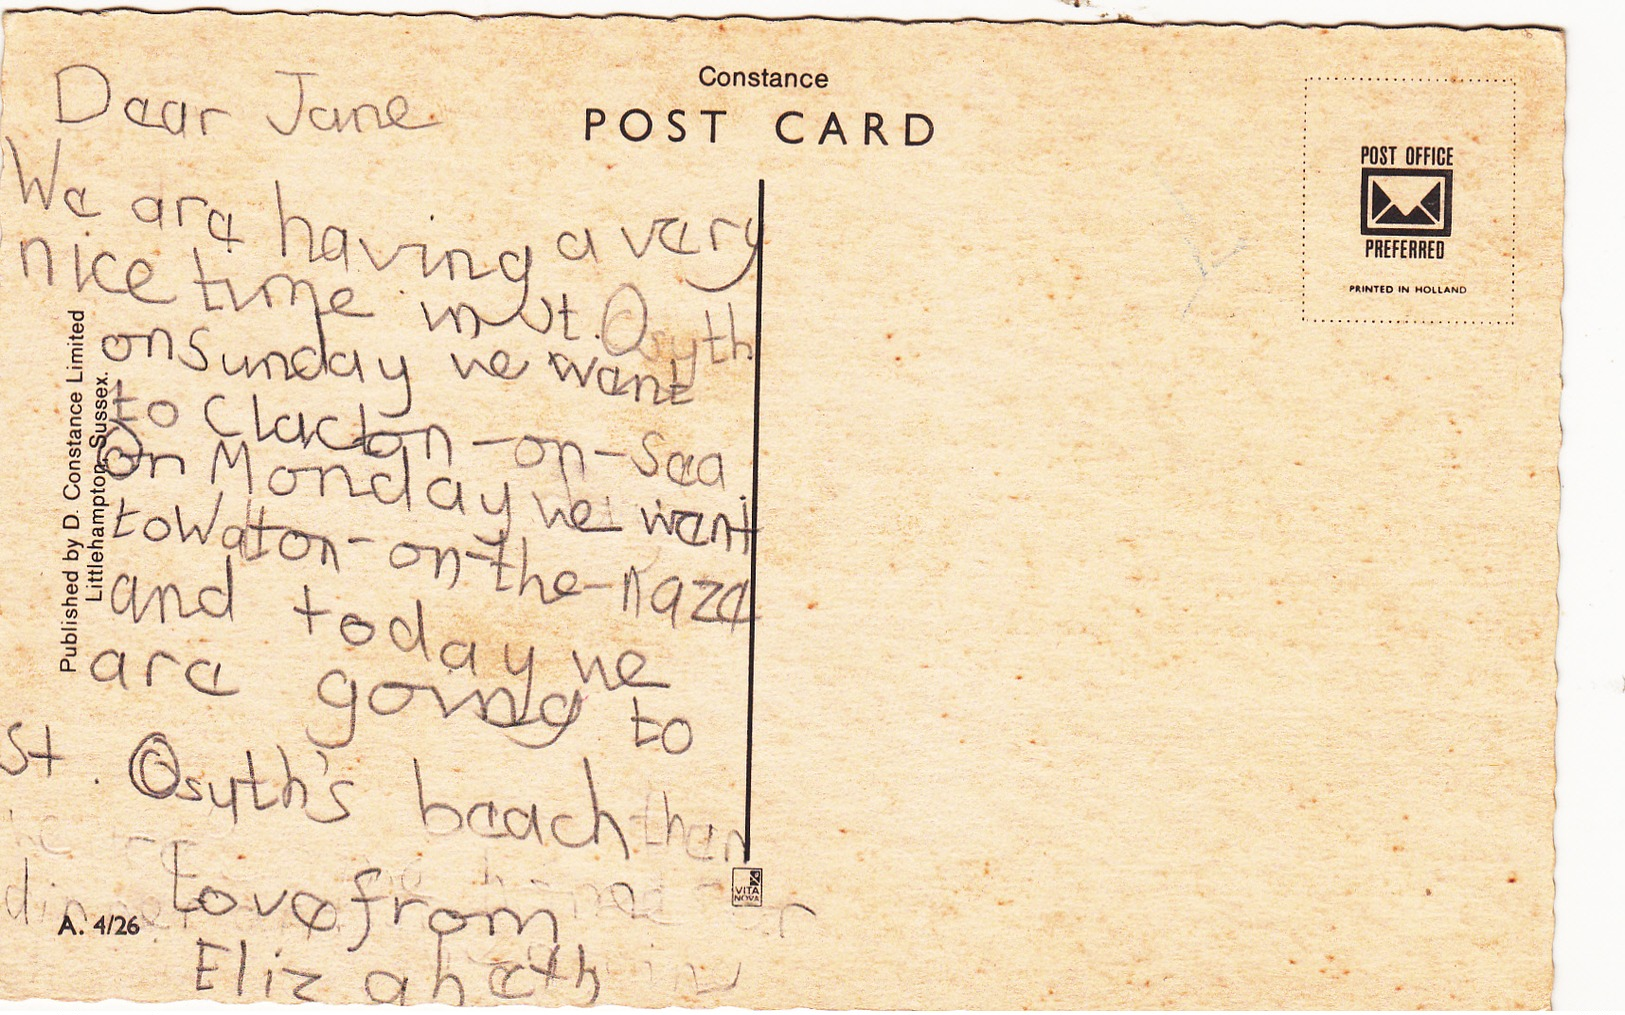 Constance
POST CARD
POST OFFICE
PREFERRED
PRINTED IN HOLLAND
Dear Jane
We are having a very
nice time in St. Osyth
on Sunday we went
to Clacton-on-Sea
On Monday we went
to Waton-on-the-naze
and today we
are going to
St. Osyth's beach then
we are
Love from
Elizabeth
Published by D. Constance Limited
Littlehampton, Sussex.
VITA
NOVA
A. 4/26